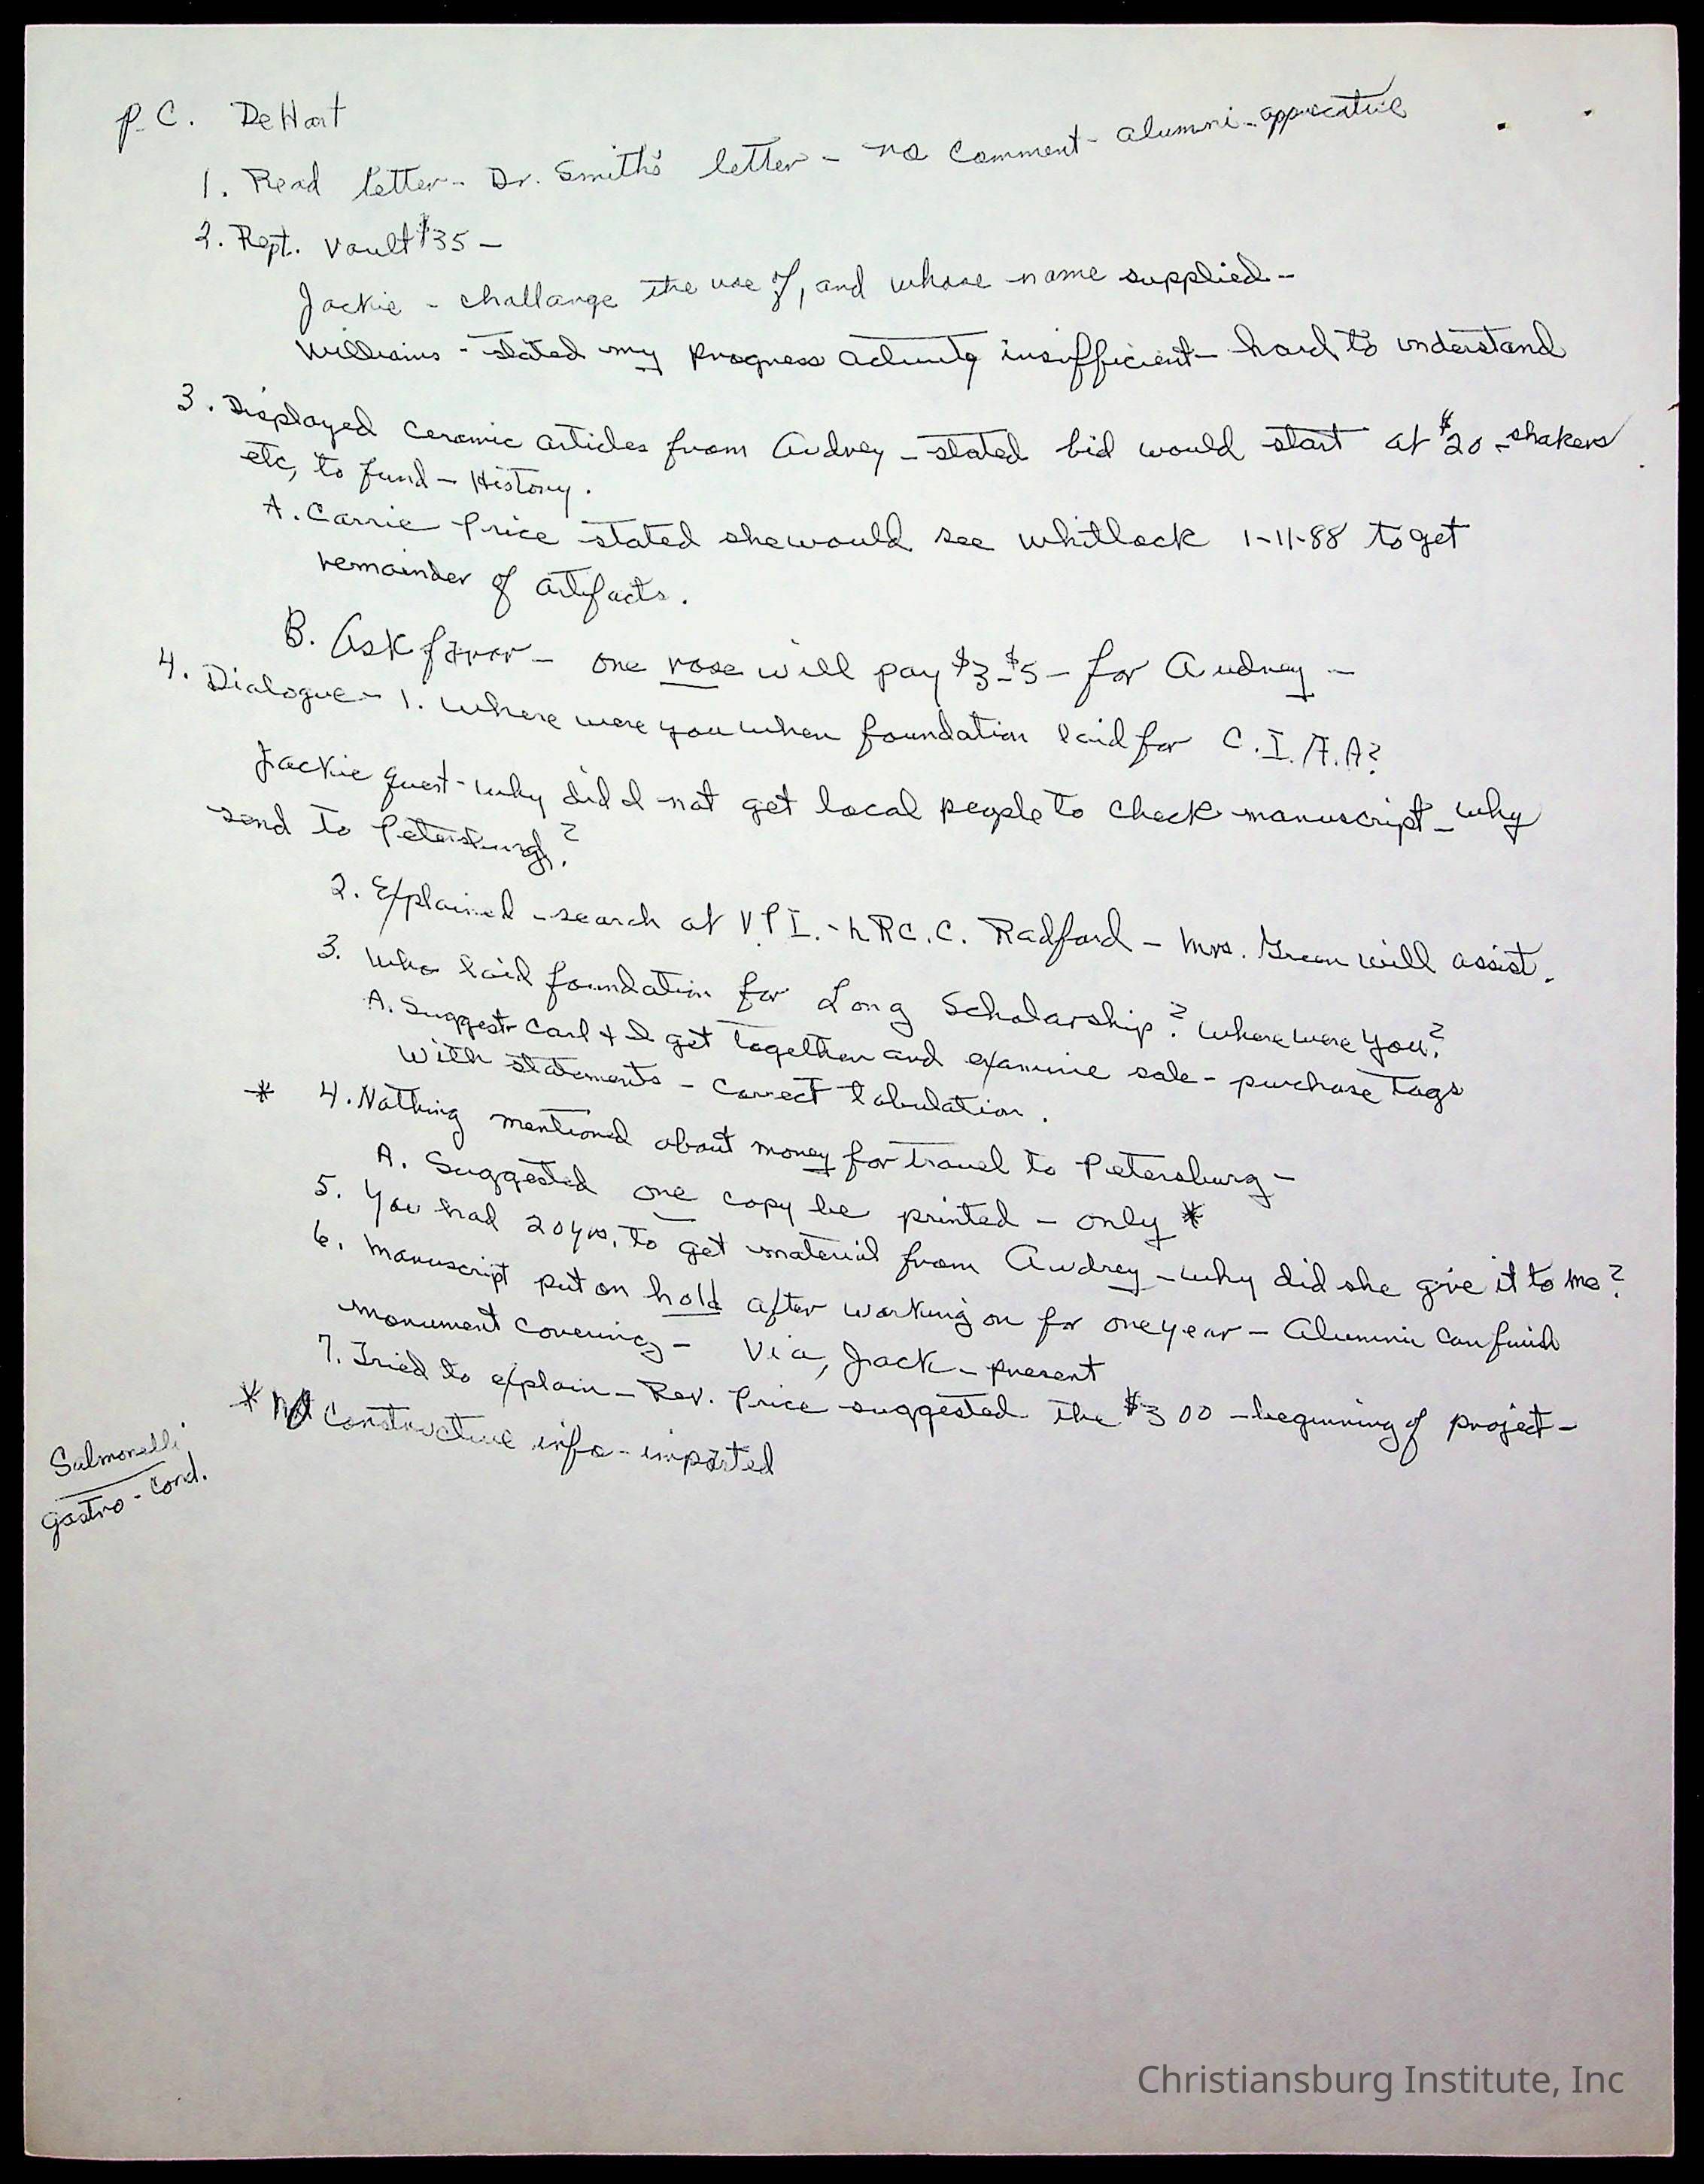 P. C. DeHart
1. Read letter - Dr. Smith's letter - no comment - alumni - apprecative
2. Rept. vault $35 -
Jackie - challange the use of, and whose name supplied -
Williams - stated my progress activity insufficient - hard to understand
3. Displayed ceramic articles from Audrey - stated bid would start at $20 - shakers
etc, to fund - History.
A. Carrie Price stated she would see Whitlock 1-11-88 to get
remainder of artifacts.
B. Ask favor - one rose will pay $3-$5 - for Audrey -
4. Dialogue - 1. Where were you when foundation laid for C.I.A.A?
Jackie quest - why did I not get local people to check manuscript - why
send to Petersburg?
2. Explained - search at V.P.I. - Radford - Mrs. Green will assist.
3. Who laid foundation for Long Scholarship? Where were you?
A. Suggest Carl & I get together and examine sale - purchase tags
with statements - correct tabulation.
* 4. Nothing mentioned about money for travel to Petersburg -
A. Suggested one copy be printed - only *
5. You had 20 yrs. to get material from Audrey - why did she give it to me?
6. Manuscript put on hold after working on for one year - Alumni can finish
monument covering - Via, Jack - present
7. Tried to explain - Rev. Price suggested the $300 - beginning of project -
* No constructive info - imparted
Salmonelli
gastro - cond.
Christiansburg Institute, Inc